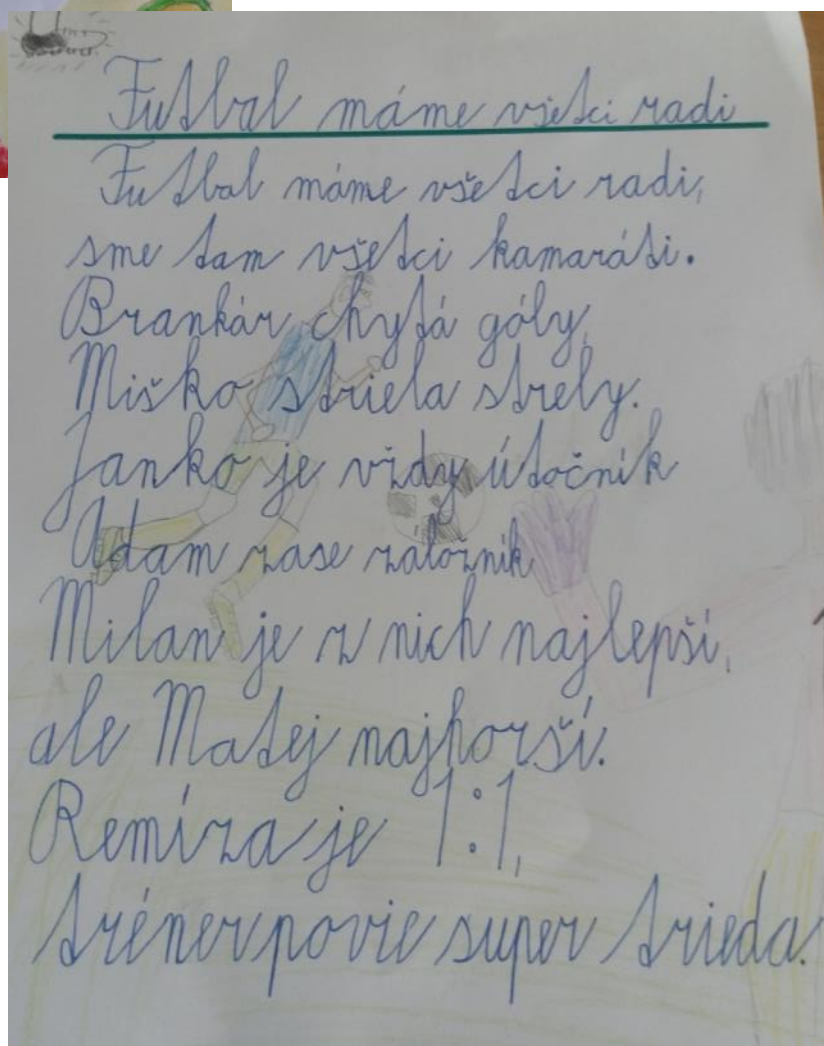 Futbal máme všetci radi
Futbal máme všetci radi,
sme tam všetci kamaráti.
Brankár chytá góly,
Miško striela strely.
Janko je vždy útočník
Adam zase záložnik
Milan je z nich najlepší,
ale Matej najhorší.
Remíza je 1:1,
tréner povie super trieda.